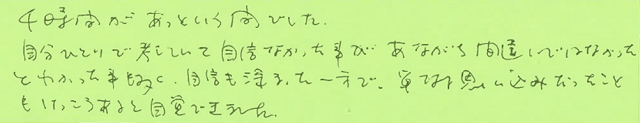 4時間があっという間でした。
自分ひとりで考えていて自信なかった事が あながち間違いではなかった
とわかった事も多く、自信も深まった一方で、単なる思い込みだったこと
もけっこうあると自覚できました。